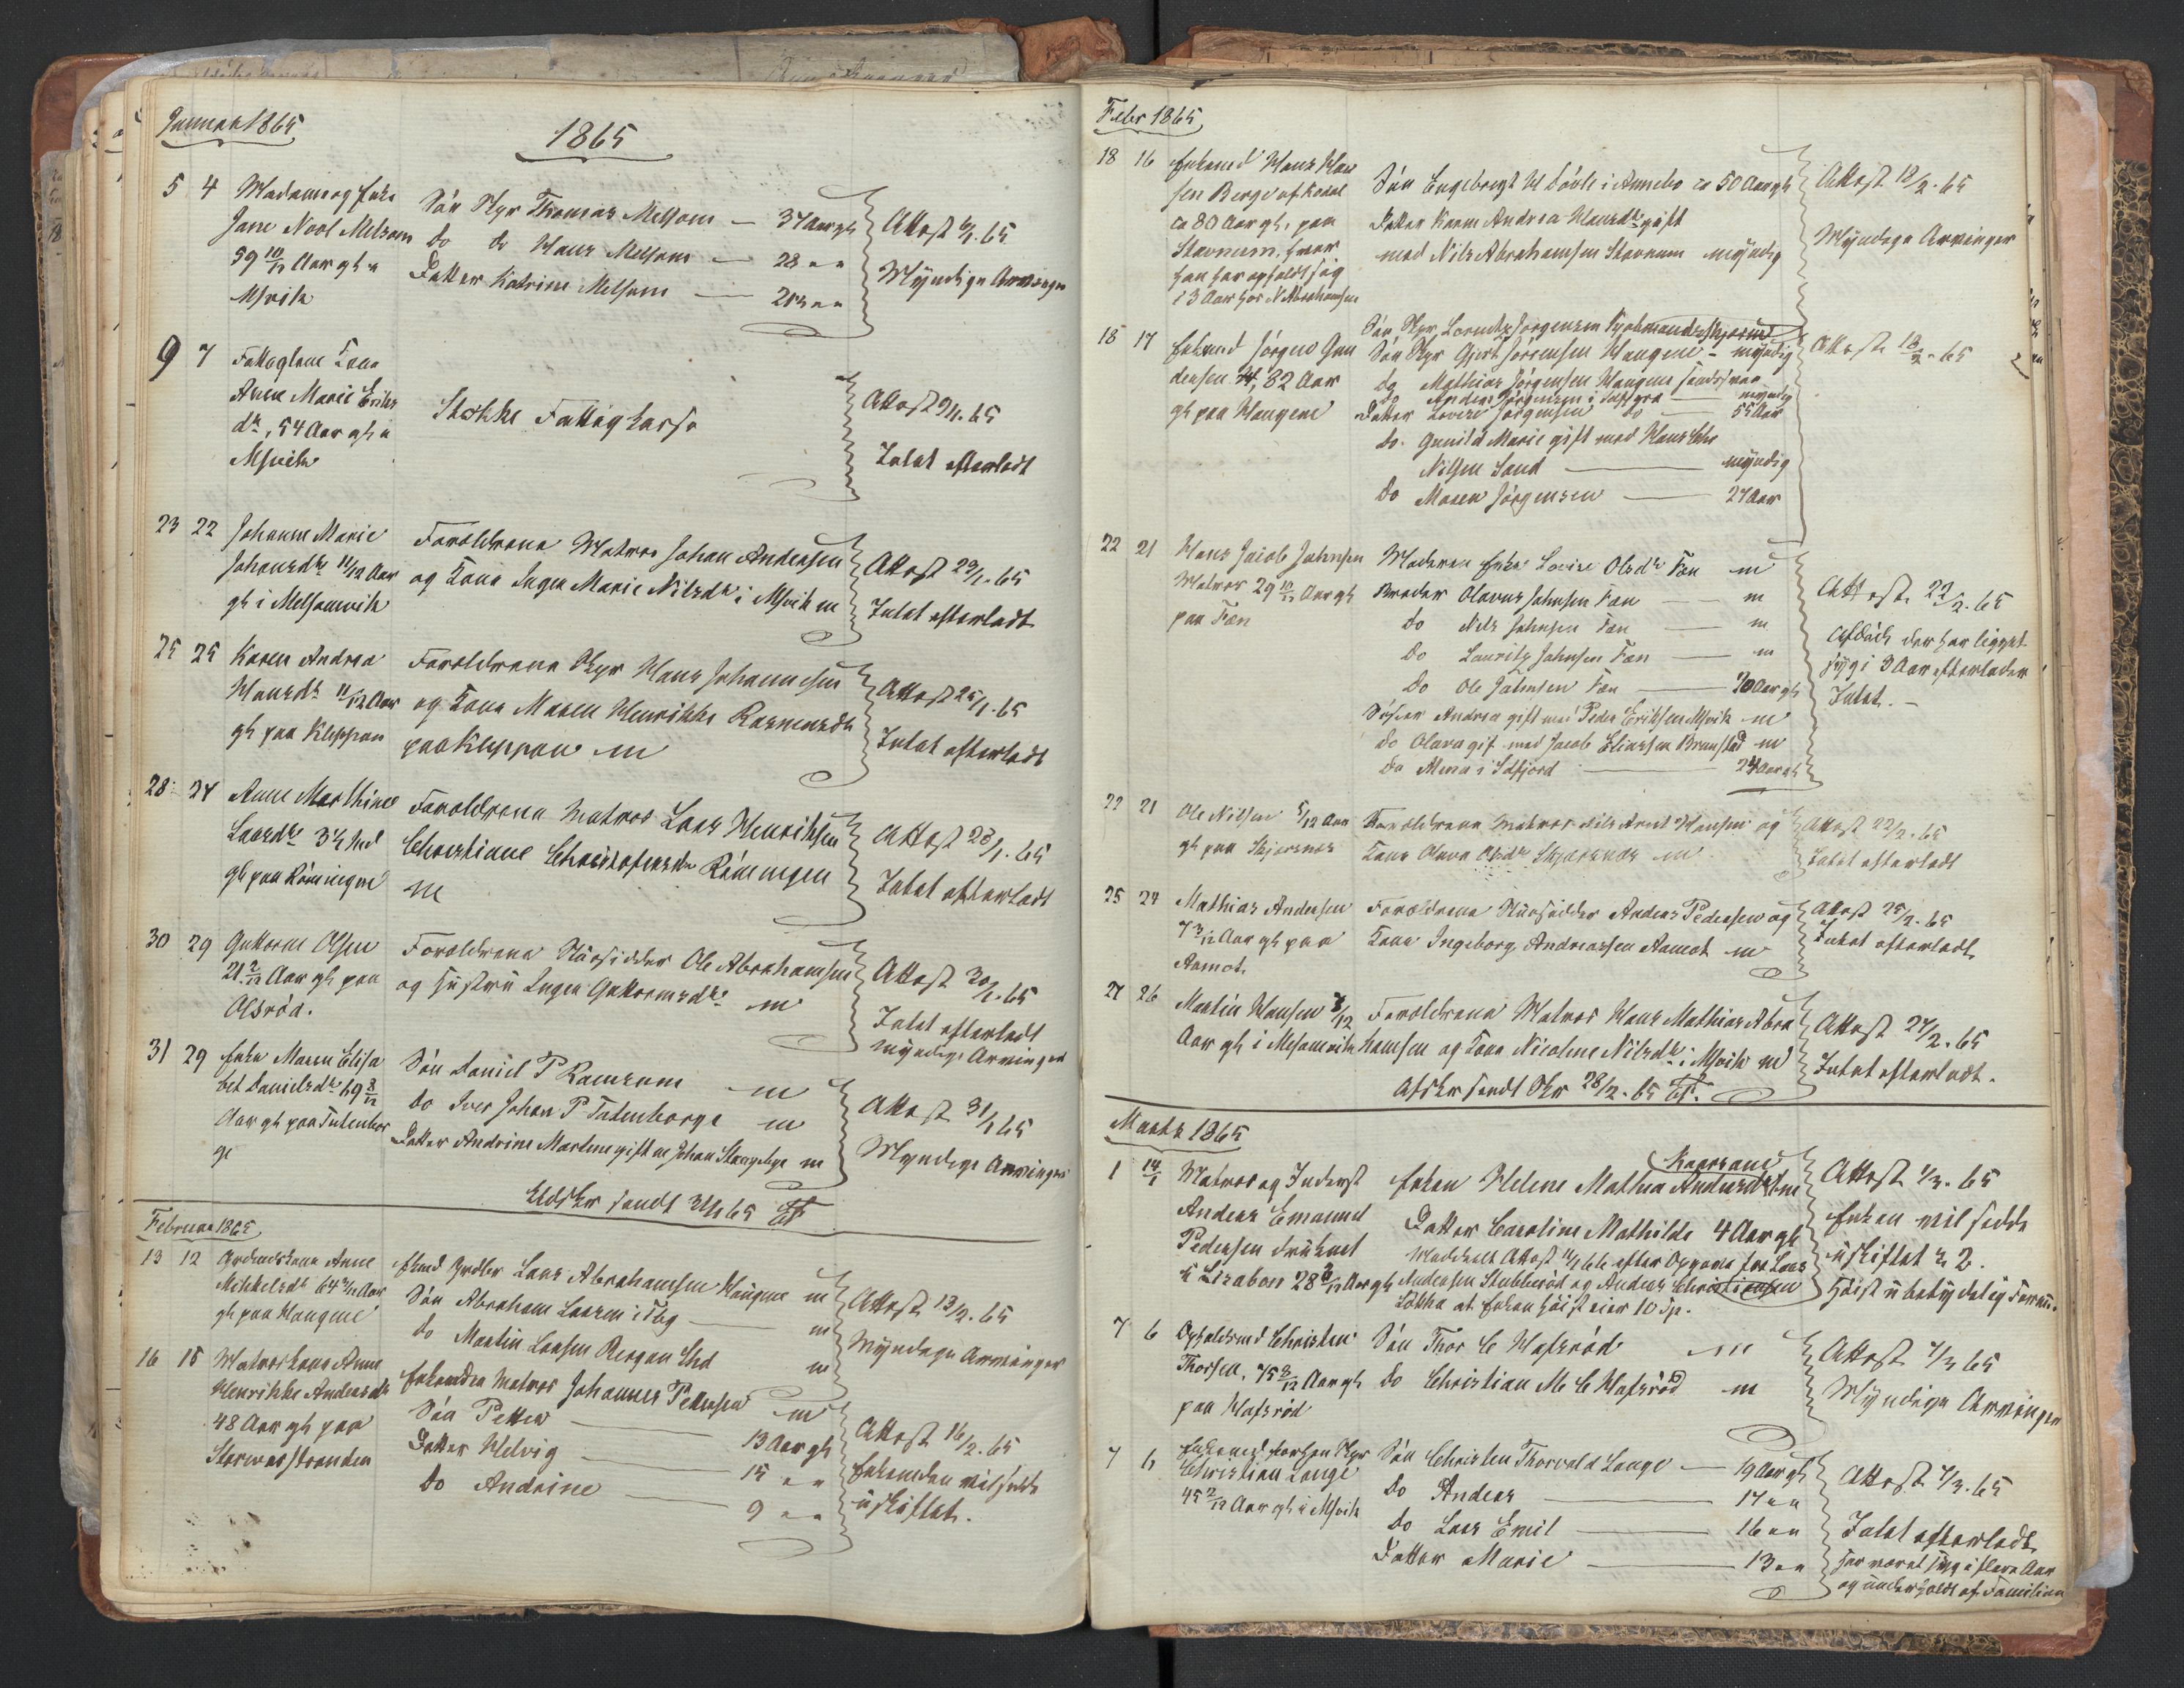 Januar 1865
1865
5 4 Madame og Enke
Jane Nool Melsom
59 10/12 Aar gl. i
Msvik
Søn Skpr Thomas Melsom — 37 Aar gl
do do Hans Melsom — 28 " "
Datter Katrine Melsom —
Attest 6/1. 65
Myndige Arvinger
9 7 Fattiglem Kone
Anne Marie Eriks
dr, 54 Aar gl. i
Msvik
Stokke Fattigkasse
Attest 9/1. 65
Intet efterladt
23 22 Johanne Marie
Johansdr 11/12 Aar
gl. i Melsomvik
Forældrene Matros Johan Andersen
og Kone Inger Marie Nilsdr i Msvik m
Attest 23/1. 65
Intet efterladt
25 25 Karen Andrea
Hansdr 11/12 Aar
gl. paa Kleppan
Forældrene Skpr Hans Johannesen
og Kone Maren Henrikke Rasmusdr
paa Kleppan m
Attest 25/1. 65
Intet efterladt
28 27 Anne Marthine
Larsdr 3½
gl. paa Rømingen
Forældrene Matros Lars Henriksen
Christiane Christofersdr Rømingen
m
Attest 28/1. 65
Intet efterladt
30 29 Guttorm Olsen
21 2/12 Aar gl. paa
Olsrød.
Forældrene Huusfader Ole Abrahamsen
og Hustru Inger Guttormsdr m
Attest 30/1. 65
Intet efterladt
Myndige Arvinger
31 29 Enke Maren Elisa
bet Danielsdr 69 8/12
Aar gl. paa Tutenber
ge
Søn Daniel P Ramsum m
do Iver Johan P Tutenberge m
Datter Andrine Martine gift m Johan Stangebye m
Attest 31/1 65
Myndige Arvinger
Udskr sendt 31/1 65
Februar 1865
13 12 Gaardmandskone Anne
Mikkelsdr 64 Aar
gl. paa Haugene
Enkmd Lars Abrahamsen Haugene m
Søn Abraham Larsen i Tbg — m
do Martin Larsen Bergan m
Attest 13/2. 65
Myndige Arvinger
16 15 Matroskone Anne
Henrikke Andersdr
48 Aar gl. paa
Storevarstranden
Enkemanden Matros Johannes Pettersen m
Søn Petter — 13 Aar gl.
Datter Helvig — 15 " "
do Andrine — 9 " "
Attest 16/2. 65
Enkemanden vil sidde
uskiftet.
Febr 1865
18 16 Enkemd Hans Han
sen Berge af Kodal
ca 80 Aar gl. paa
Stavnum, hvor
han har opholdt sig
i 3 Aar hos N Abrahamsen
Søn Engebregt H i Annebo ca 50 Aar gl
Datter Karen Andrea Hansdr gift
med Nils Abrahamsen Stavnum myndig
Attest 18/2. 65
Myndige Arvinger
18 17 Enkemd Jørgen Gun
dersen 82 Aar
gl. paa Haugene
Søn Skpr Lorentz Jørgensen
Søn Skpr Gjert Jørgensen Haugene – myndig
do Mathias Jørgensen Haugene
do Anders Jørgensen i — myndig
Datter Lovise Jørgensen do — 55 Aar
do. Gunild Marie gift med Hans Chr
Nilsen Sand — myndig
do Maren Jørgensen — 27 Aar
Attest 18/2. 65
22 21 Hans Jacob Johnsen
Matros 29 10/12 Aar gl
paa Fæn
Moderen Enke Lovise Olsdr Fæn m
Broder Olavus Johnsen Fæn — m
do Nils Johnsen Fæn — m
do Lauritz Johnsen Fæn — m
do Ole Johnsen Fæn — 20 Aar gl
Søster Andrea gift med Peder Eriksen Msvik m
do Olava gif med Jacob Eliassen Brunstad m
do Mina i Istfjord — 24 Aar gl
Attest 22/2. 65
Afdøde der har ligget
syg i 3 Aar efterlader
Intet. –
22 21 Ole Nilsen 5/12 Aar
gl. paa Skjærsnes
Forældrene Matros Nils Arent Hansen og
Kone Olava Olsdr Skjærsnes m
Attest 22/2. 65
Intet efterladt
25 24 Mathias Andersen
7 3/12 Aar gl. paa
Aamot.
Forældrene Huusfader Anders Pedersen og
Kone Ingeborg Andreassen Aamot m
Attest 25/2. 65
Intet efterladt
27 26 Martin Hansen 3/12
Aar gl. i Melsomvik
Forældrene Matros Hans Mathias Abra
hamsen og Kone Nicoline Nilsdr i Msvik m
Attest 27/2. 65
Intet efterladt.
Afskr sendt Skr 28/2. 65
Marts 1865
1 14/1 Matros og Inderst
Anders Emanuel
Pedersen druknet
i Lissabon 28 Aar gl
Kaarsand
Enken Helene Mathea Andersdr
Datter Caroline Mathilde 4 Aar gl
Meddeelt Attest 11/1 66 efter Opgave fra Lars
Andersen Stubberød og Anders Christiansen
Løkka at Enken høist eier 10 Sp.
Attest 1/3. 65
Enken vil sidde
uskiftet
høist ubetydelig Formue.
7 6 Opholdsmd Christen
Thorsen, 75 Aar gl
paa Hafsrød
Søn Thor C Hafsrød m
do Christian M C Hafsrød m
Attest 7/3 65
Myndige Arvinger
7 6 Enkemd forhen Skpr
Christian Lange
45 2/12 Aar gl. i Msvik
Søn Christen Thorvald Lange — 19 Aar gl.
do Anders — 17 " "
do Lars Emil — 16 " "
Datter Marie — 13 " "
Attest 7/3. 65
Intet efterladt,
har været syg i flere Aar
og underholdt af Familien